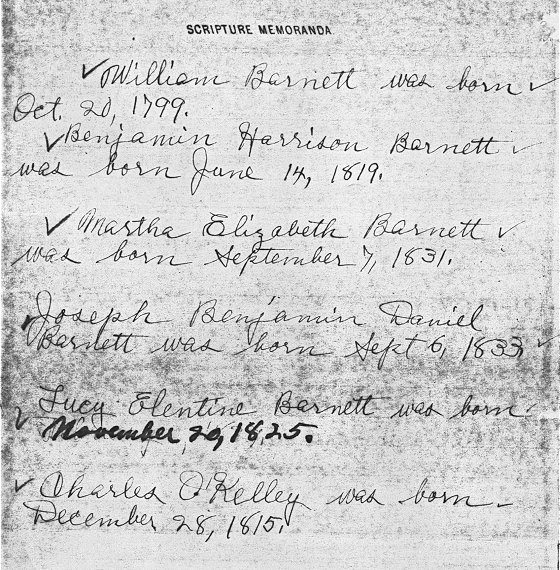 SCRIPTURE MEMORANDA
William Barnett was born
Oct. 20, 1799.
Benjamin Harrison Barnett
was born June 14, 1819.
Martha Elizabeth Barnett
was born September 7, 1831.
Joseph Benjamin Daniel
Barnett was born Sept 6, 1833
Lucy Elentine Barnett was born
November 20, 1825.
Charles O'Kelley was born
December 28, 1815.